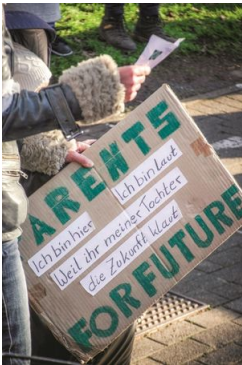 ARENTS
Ich bin hier
Ich bin laut
Weil ihr meiner Tochter
die Zukunft klaut
FOR FUTURE